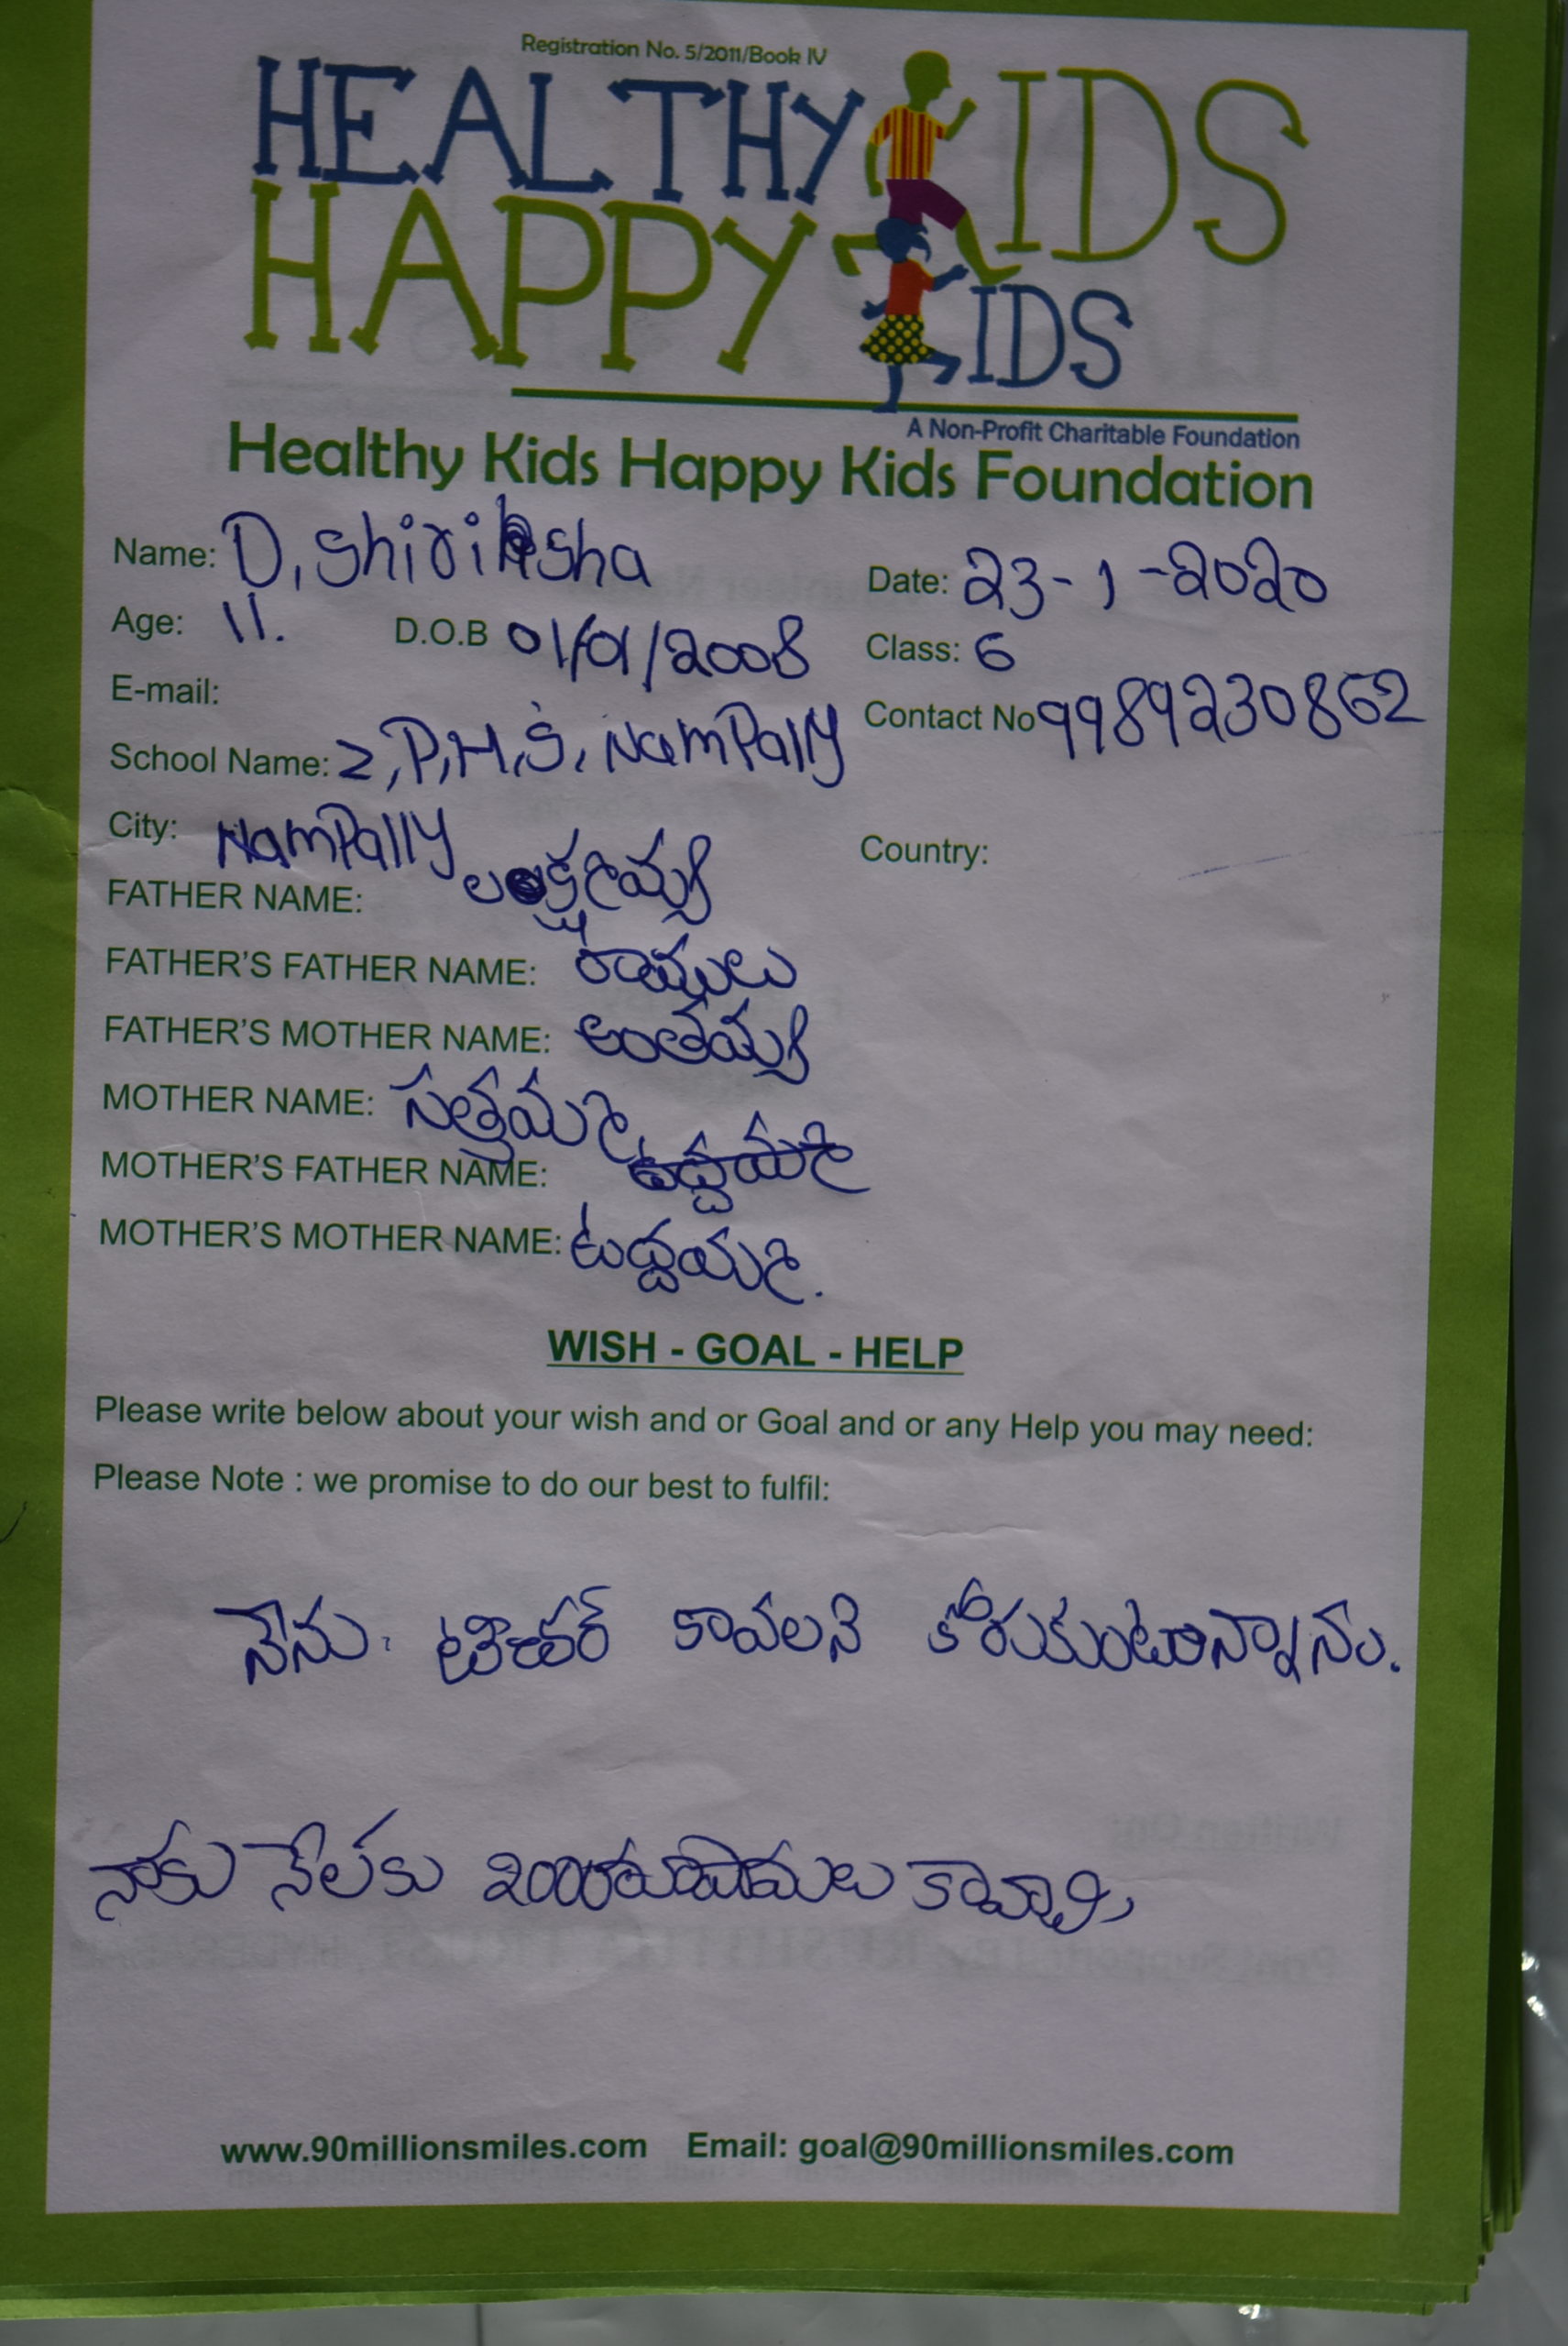 Registration No. 5/2011/Book IV
HEALTHY KIDS
HAPPY KIDS
A Non-Profit Charitable Foundation
Healthy Kids Happy Kids Foundation
Name: D, Shiriksha
Date: 23-1-2020
Age: 11. D.O.B 01/01/2008
Class: 6
E-mail:
Contact No 9989230862
School Name: Z,P,H,S, NamPally
City: NamPally
Country:
FATHER NAME: లక్ష్మయ్య
FATHER'S FATHER NAME: రాములు
FATHER'S MOTHER NAME: అంతయ్య
MOTHER NAME: సత్తమ్మ
MOTHER'S FATHER NAME:
MOTHER'S MOTHER NAME: ఉద్దమ్మ.
WISH - GOAL - HELP
Please write below about your wish and or Goal and or any Help you may need:
Please Note : we promise to do our best to fulfil:
నేను కావలని కోరుకుంటున్నాను.
నాకు నేలకు కావ్వాలి,
www.90millionsmiles.com Email: goal@90millionsmiles.com